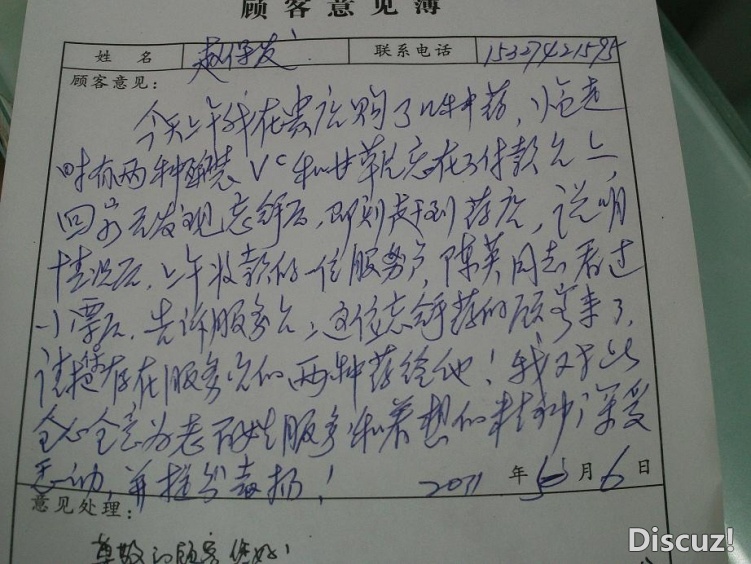 顾客意见簿
姓 名 赵保发 联系电话 15327421595
顾客意见：
今天上午我在贵店购了几种中药，临走
时有两种瓶装Vc和甘草片忘在了付款台上，
回家后发现忘拿后，即刻赶到药店，说明
情况后，上午收款的一位服务员陈英同志看过
小票后，告诉服务台：这位忘拿药的顾客来了，
请把存在服务台的两种药给他！我对此
全心全意为老百姓服务和着想的精神深受
感动，并提出表扬！
2011 年 月 6 日
意见处理：
尊敬的顾客您好！
Discuz!